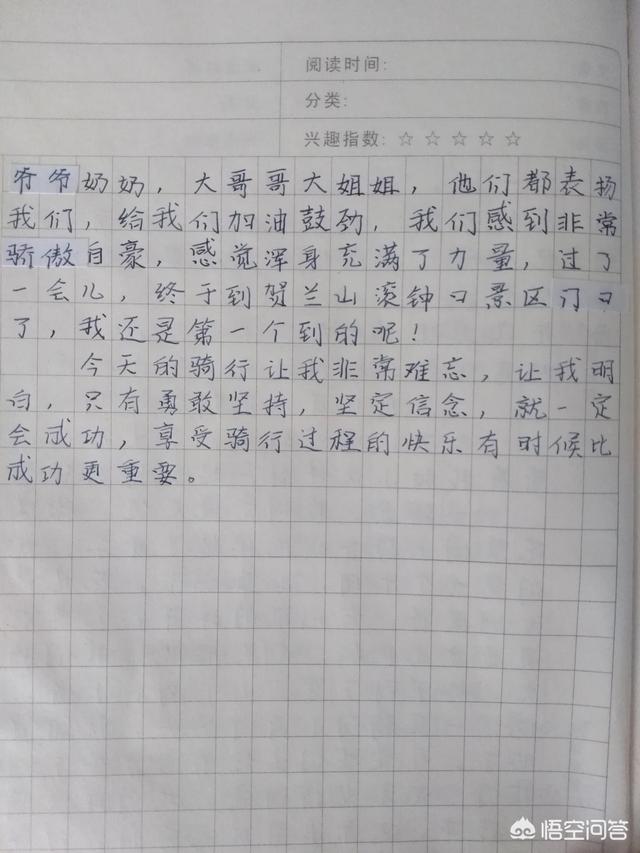 阅读时间:
分类:
兴趣指数: ☆ ☆ ☆ ☆ ☆
爷爷奶奶，大哥哥大姐姐，他们都表扬
我们，给我们加油鼓劲，我们感到非常
骄傲自豪，感觉浑身充满了力量，过了
一会儿，终于到贺兰山滚钟口景区门口
了，我还是第一个到的呢！
今天的骑行让我非常难忘，让我明
白，只有勇敢坚持，坚定信念，就一定
会成功，享受骑行过程的快乐有时候比
成功更重要。
悟空问答